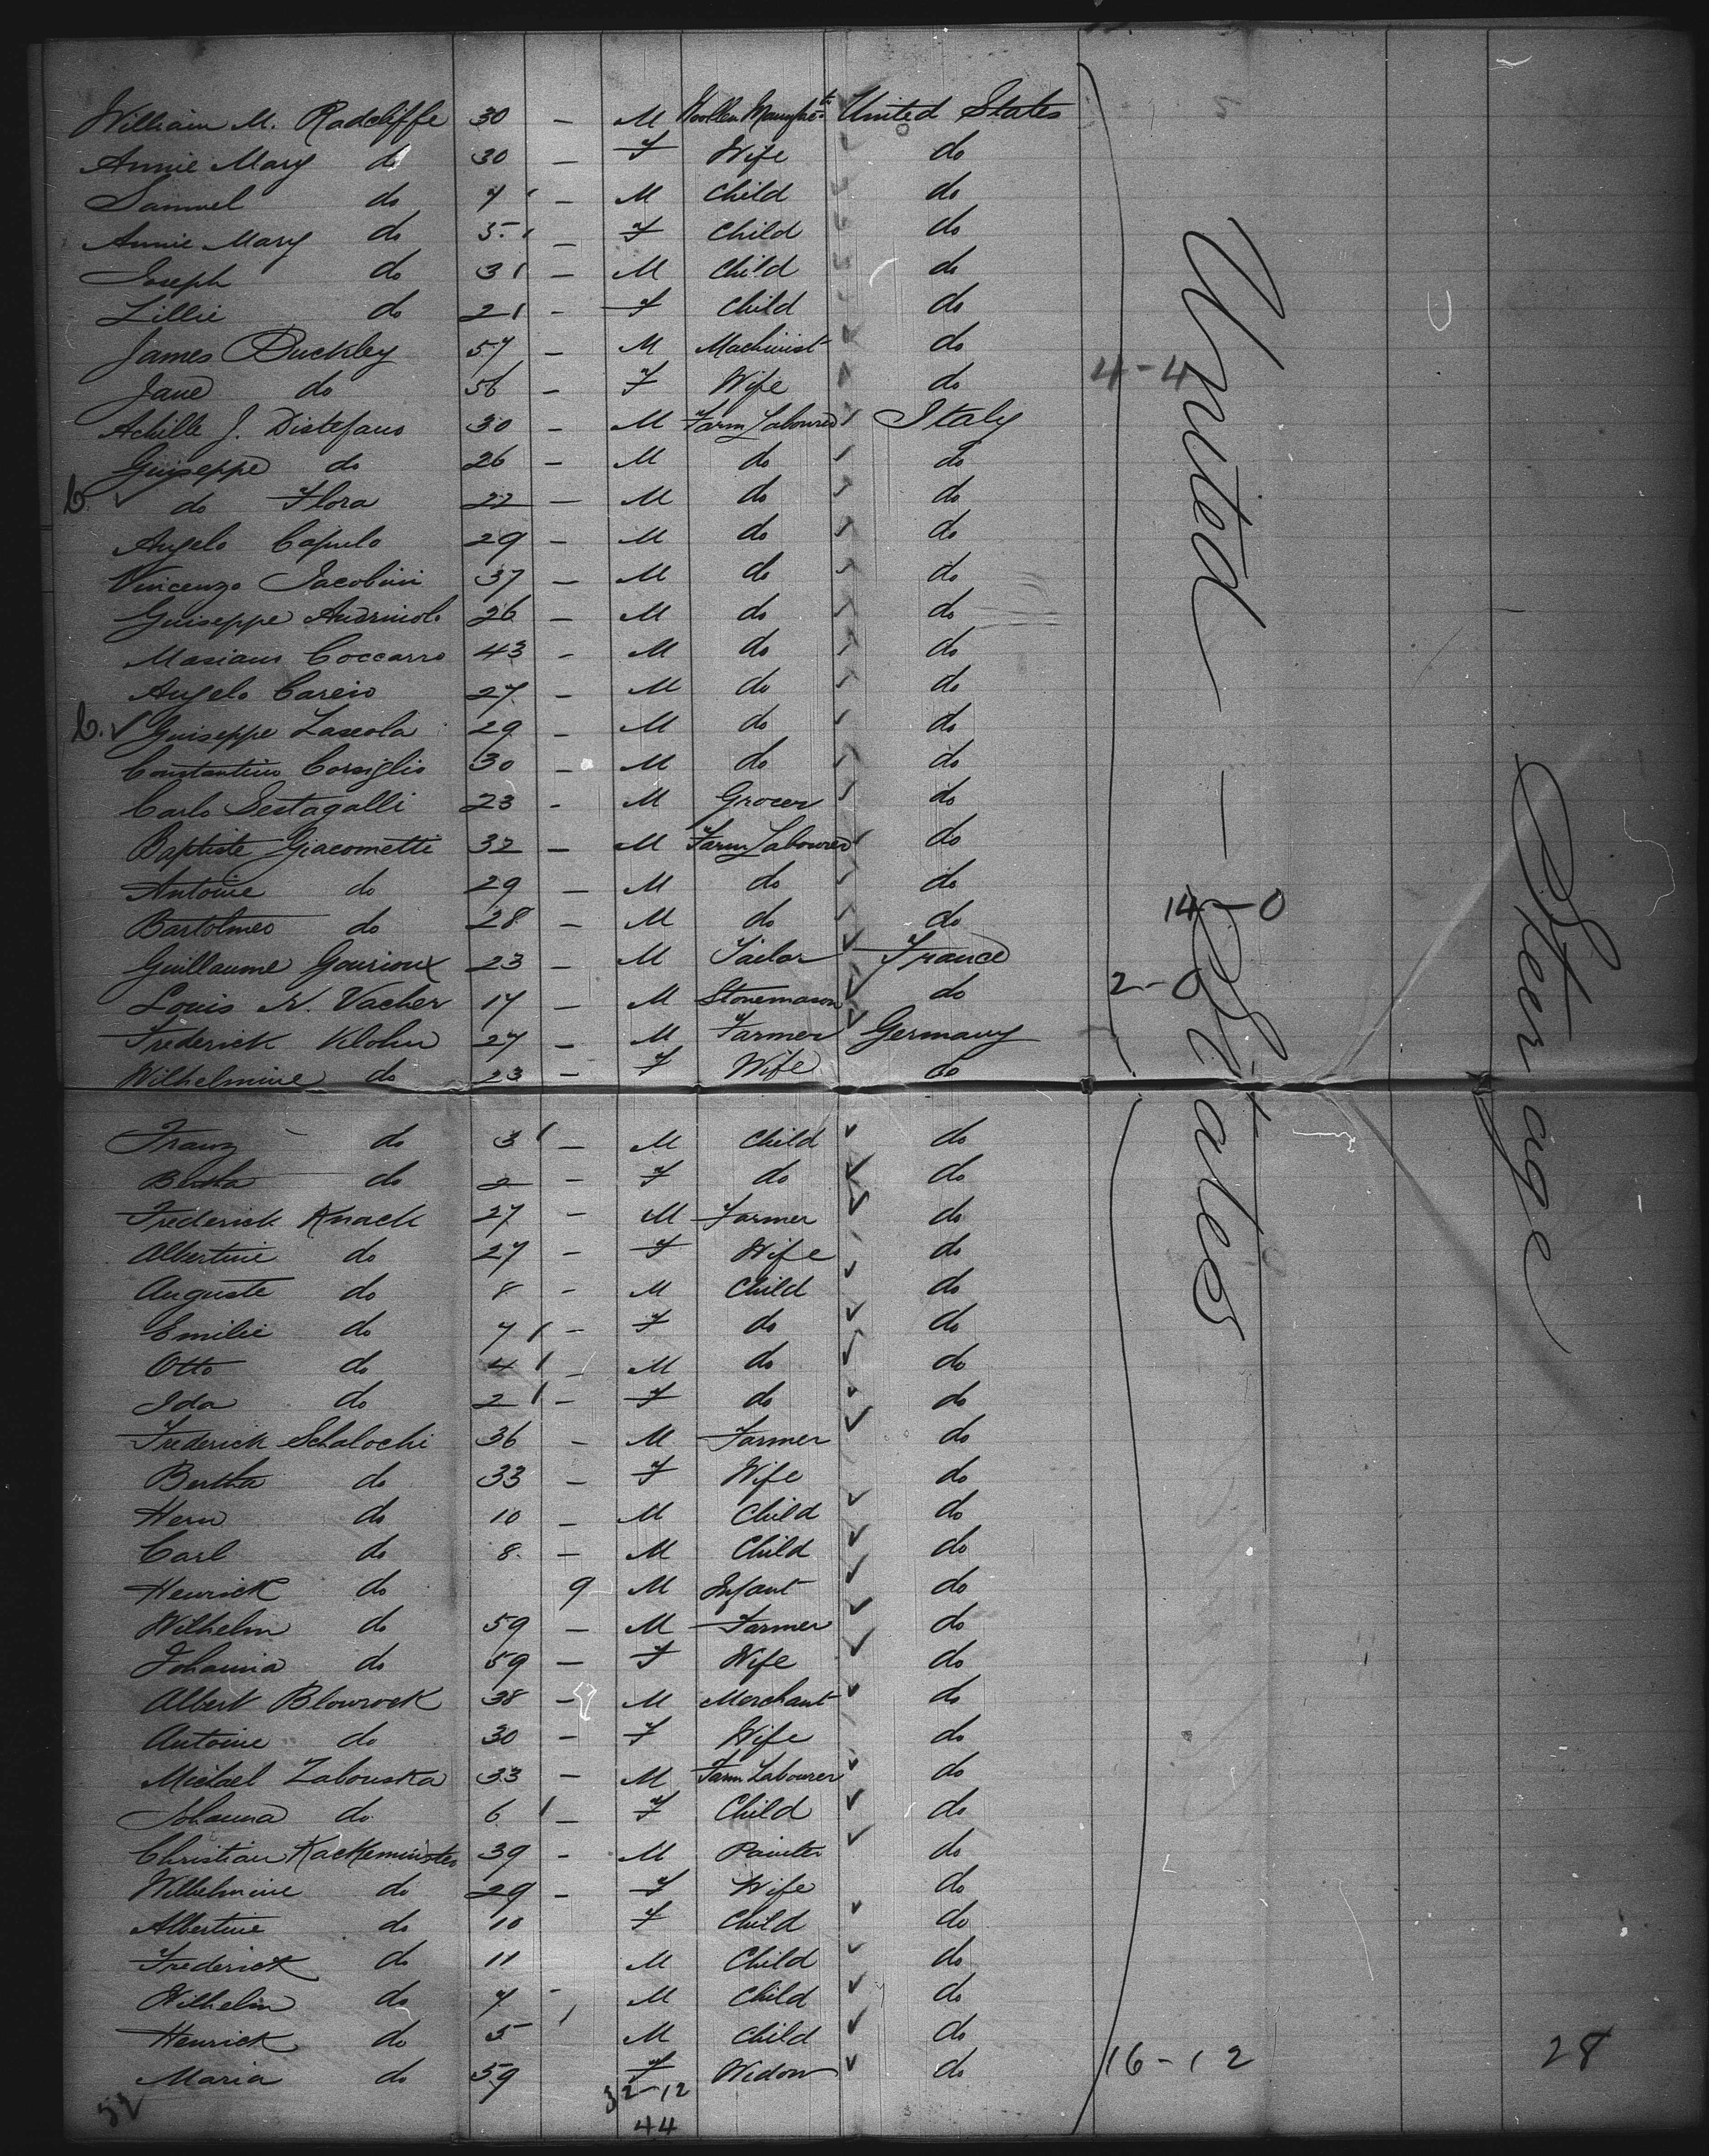 William M. Radcliffe 30 - M Woollen Manufr United States
Annie Mary do 30 - F Wife do
Samuel do 7 - M Child do
Annie Mary do 5 - F Child do
Joseph do 3 - M Child do
Lillie do 2 - F Child do
James Buckley 57 - M Machinist do
Jane do 56 - F Wife do
4-4
Achille J. Distefano 30 - M Farm Labourer Italy
Guiseppe do 26 - M do do
do Flora 22 - M do do
Angelo 29 - M do do
Vincenzo Jacobini 37 - M do do
Guiseppe 26 - M do do
Coccarro 43 - M do do
Angelo 27 - M do do
Guiseppe Lascola 29 - M do do
Constantino Corsiglio 30 - M do do
Carlo Sestagalli 23 - M Grocer do
Baptiste Giacometti 32 - M Farm Labourer do
Antoine do 29 - M do do
Bartolmeo do 28 - M do do 14-0
Guillaume Gourioux 23 - M Tailor France
Louis N. Vacher 17 - M Stonemason do 2-0
Frederick Klohn 27 - M Farmer Germany
Wilhelmine do 23 - F Wife do
Franz do 3 - M Child do
Bertha do 2 - F do do
Frederick Knack 27 - M Farmer do
Albertine do 27 - F Wife do
Auguste do 8 - M Child do
Emilie do 7 - F do do
Otto do 4 - M do do
Ida do 2 - F do do
Frederick Schalochi 36 - M Farmer do
Bertha do 33 - F Wife do
Hern do 10 - M Child do
Carl do 8 - M Child do
Henrick do 9 M Infant do
Wilhelm do 59 - M Farmer do
Johanna do 59 - F Wife do
Albert Blowrock 38 - M Merchant do
Antoine do 30 - F Wife do
Michael Zabouska 33 - M Farm Labourer do
Johanna do 6 - F Child do
Christian 39 - M Painter do
Wilhelmine do 29 - F Wife do
Albertine do 10 F Child do
Frederick do 11 M Child do
Wilhelm do 7 - M Child do
Henrick do 5 M Child do
Maria do 59 F Widow do 16-12 28
52 32-12
44
United - States
Steerage